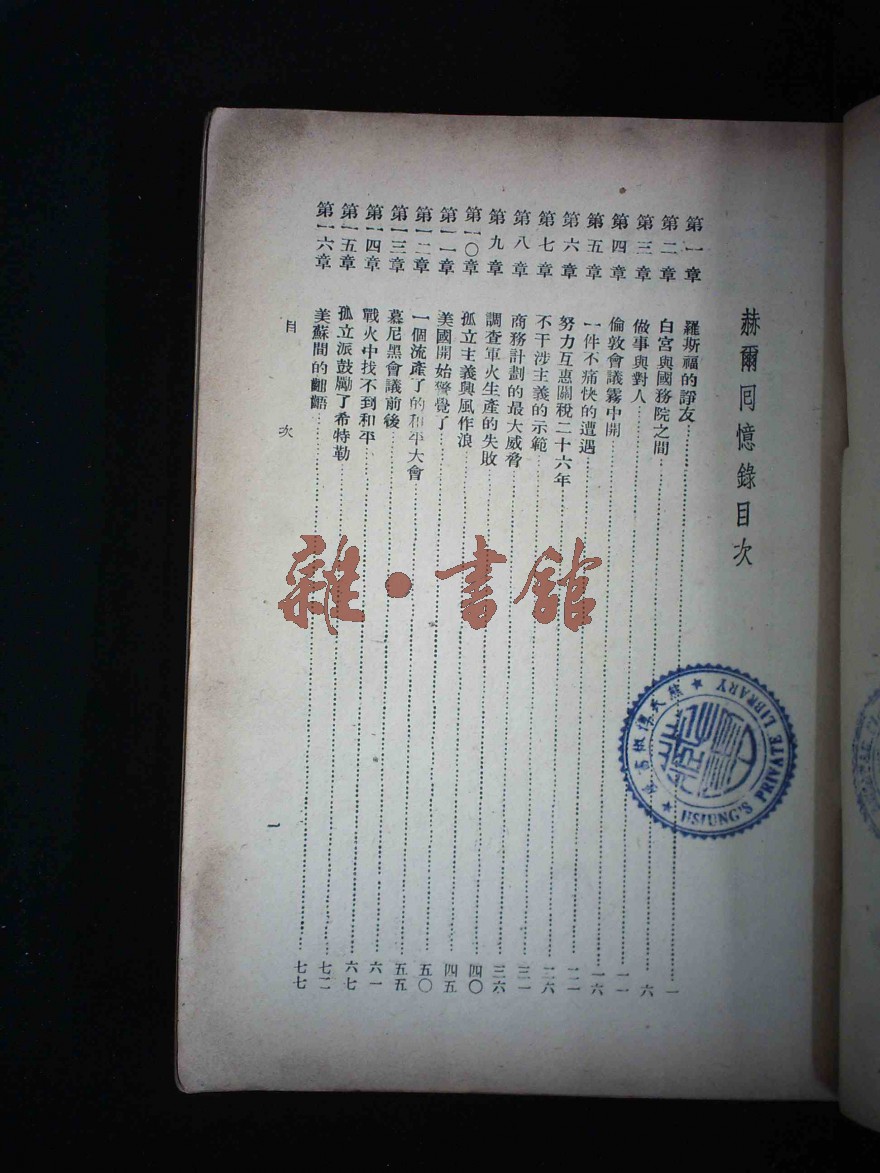 赫爾囘憶錄目次
第一章 羅斯福的諍友……一
第二章 白宮與國務院之間……六
第三章 做事與對人……一一
第四章 倫敦會議霧中開……一六
第五章 一件不痛快的遭遇……二一
第六章 努力互惠關稅二十六年……二六
第七章 不干涉主義的示範……三一
第八章 商務計劃的最大威脅……三六
第九章 調查軍火生產的失敗……四〇
第一〇章 孤立主義興風作浪……四五
第一一章 美國開始警覺了……五〇
第一二章 一個流產了的和平大會……五五
第一三章 慕尼黑會議前後……六一
第一四章 戰火中找不到和平……六七
第一五章 孤立派鼓勵了希特勒……七二
第一六章 美蘇間的齟齬……七七
目次
一
雜·書館
HSIUNG'S PRIVATE LIBRARY